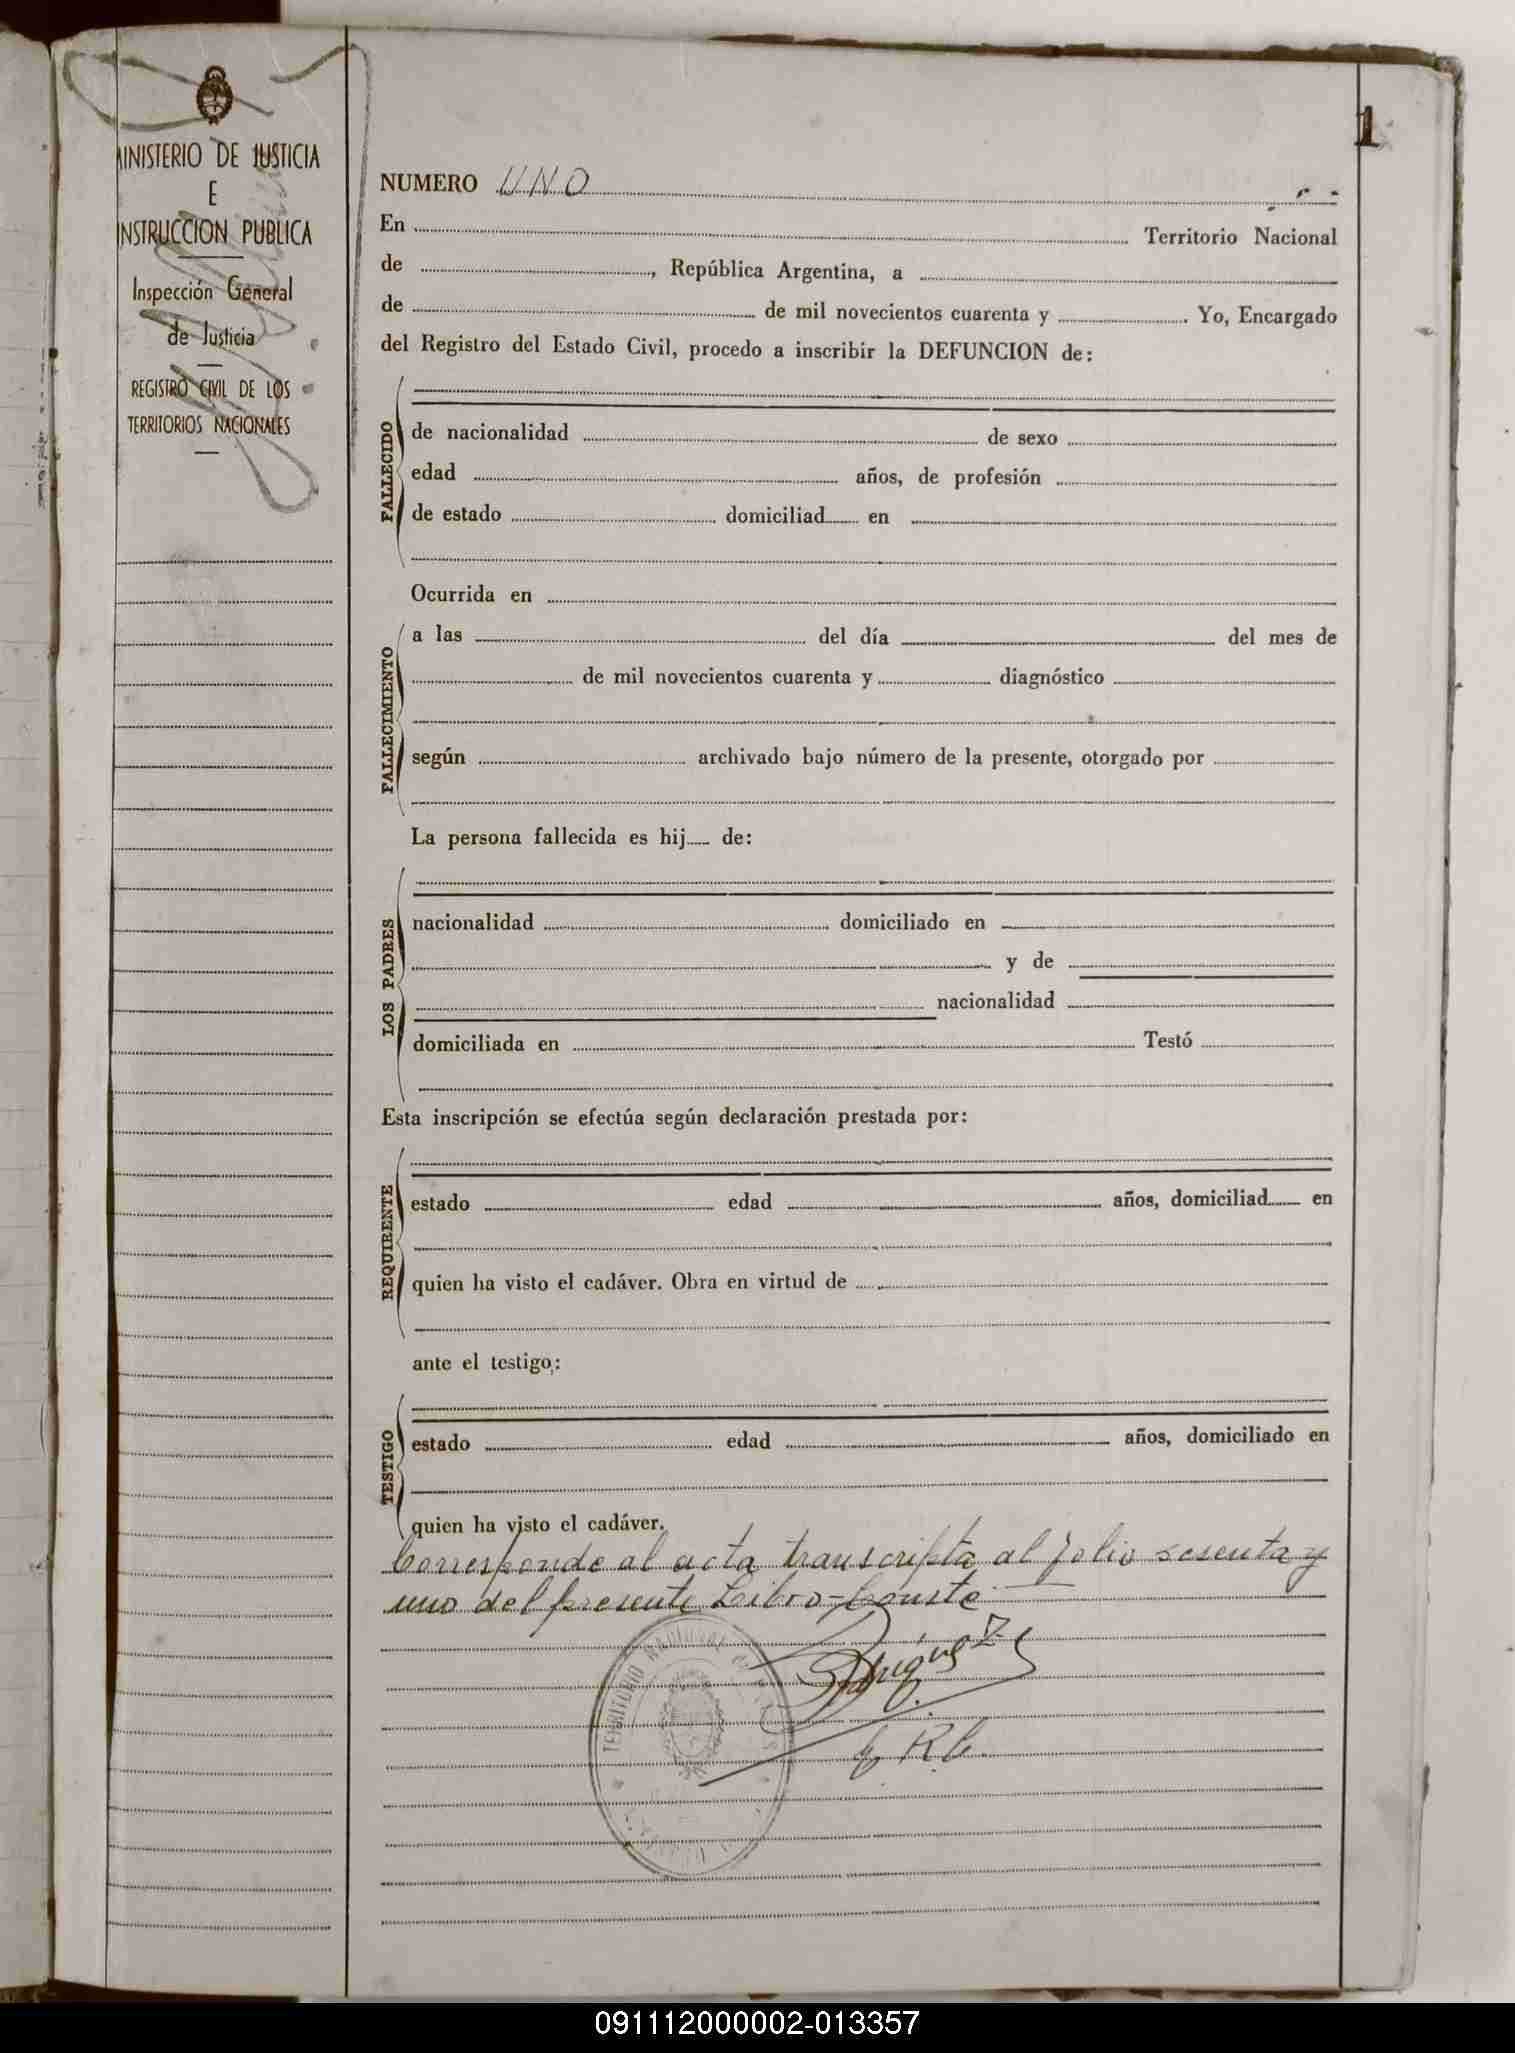 1
MINISTERIO DE JUSTICIA
E
INSTRUCCION PUBLICA
Inspección General
de Justicia
REGISTRO CIVIL DE LOS
TERRITORIOS NACIONALES
NUMERO UNO
En Territorio Nacional
de , República Argentina, a
de de mil novecientos cuarenta y . Yo, Encargado
del Registro del Estado Civil, procedo a inscribir la DEFUNCION de:
FALLECIDO
de nacionalidad de sexo
edad años, de profesión
de estado domiciliad en
Ocurrida en
FALLECIMIENTO
a las del día del mes de
de mil novecientos cuarenta y diagnóstico
según archivado bajo número de la presente, otorgado por
La persona fallecida es hij de:
LOS PADRES
nacionalidad domiciliado en
y de
nacionalidad
domiciliada en Testó
Esta inscripción se efectúa según declaración prestada por:
REQUIRENTE
estado edad años, domiciliad en
quien ha visto el cadáver. Obra en virtud de
ante el testigo:
TESTIGO
estado edad años, domiciliado en
quien ha visto el cadáver.
Corresponde al acta transcripta al folio sesenta y
uno del presente Libro-Conste
TERRITORIO NACIONAL
091112000002-013357